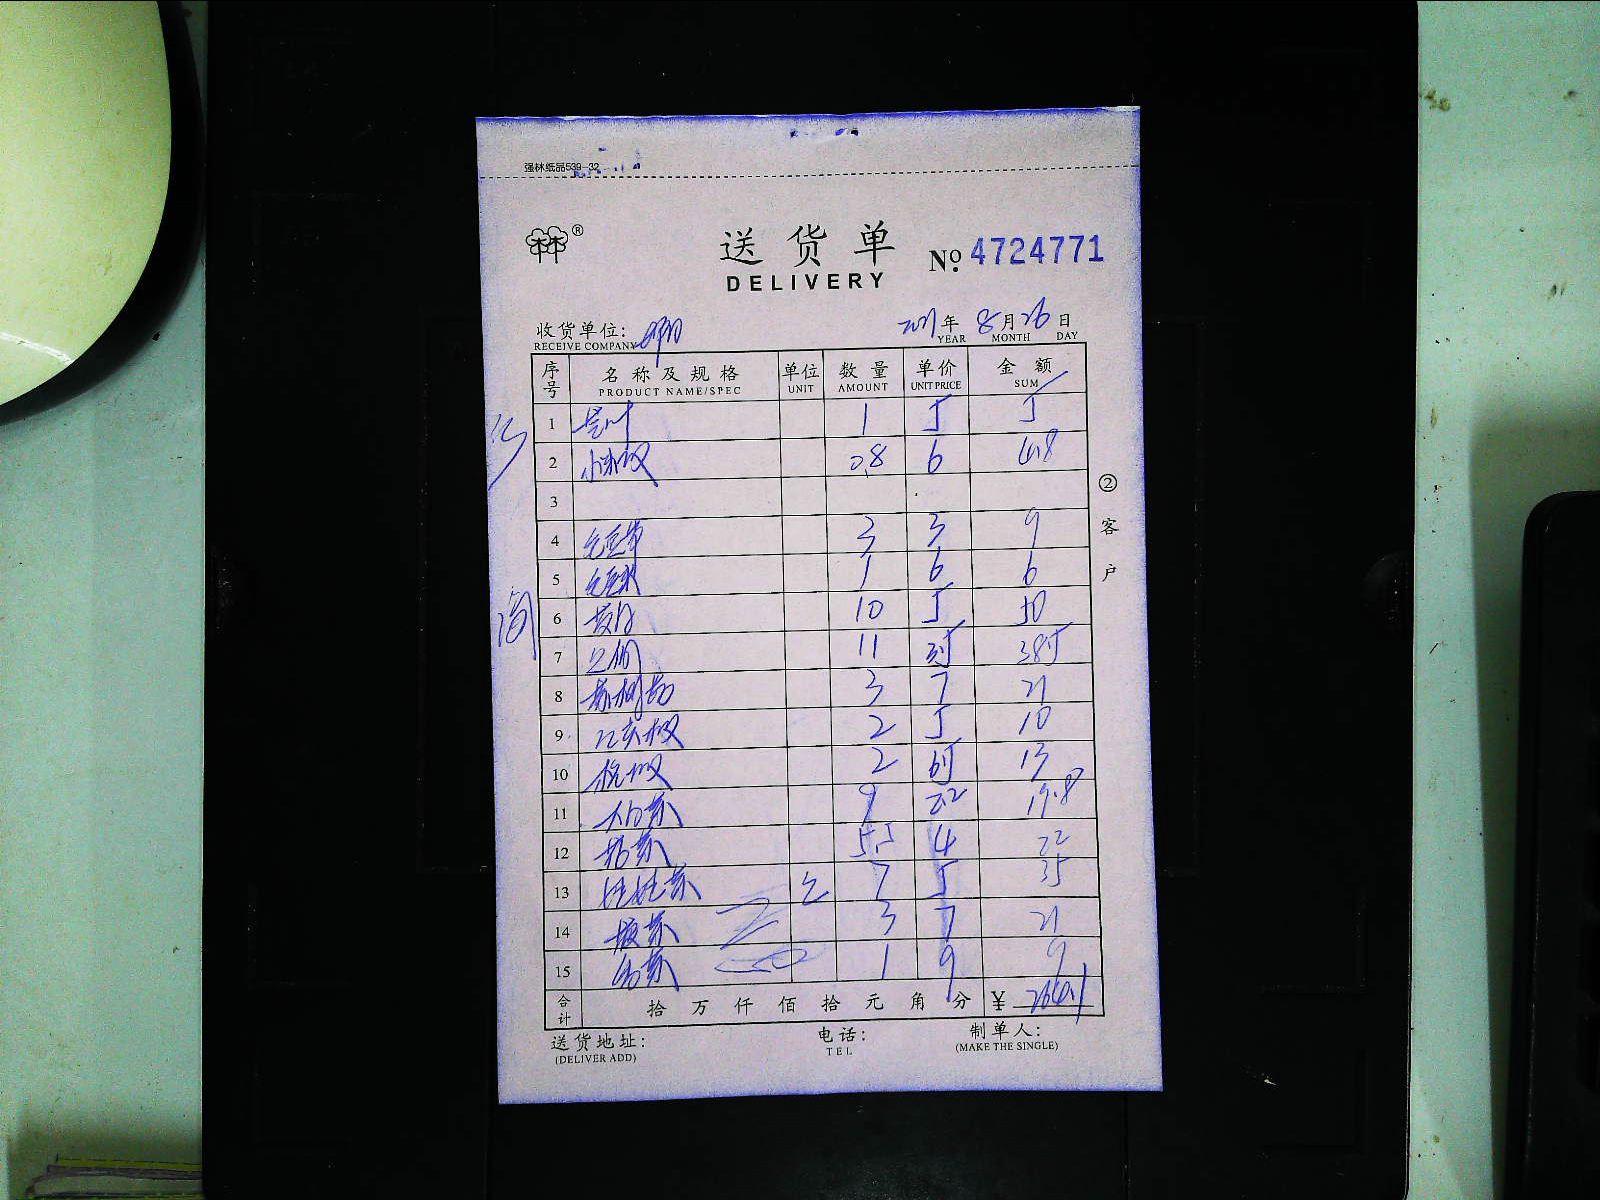 强林纸品539-32
林林®
送货单
No. 4724771
DELIVERY
收货单位:
RECEIVE COMPANY
2021年 8月26日
YEAR MONTH DAY
序号 名称及规格 单位 数量 单价 金额
PRODUCT NAME/SPEC UNIT AMOUNT UNIT PRICE SUM
1 1 5 5
2 小米椒 0.8 6 4.8
3
4 3 3 9
5 1 6 6
6 10 5 50
7 11 3.5 38.5
8 3 7 21
9 2 5 10
10 杭椒 2 6.5 13
11 大白菜 9 2.2 19.8
12 5.5 4 22
13 娃娃菜 7 5 35
14 3 7 21
15 1 9 9
合计 拾万仟佰拾元角分 ¥ 264.1
②客户
送货地址: 电话: 制单人:
(DELIVER ADD) TEL (MAKE THE SINGLE)